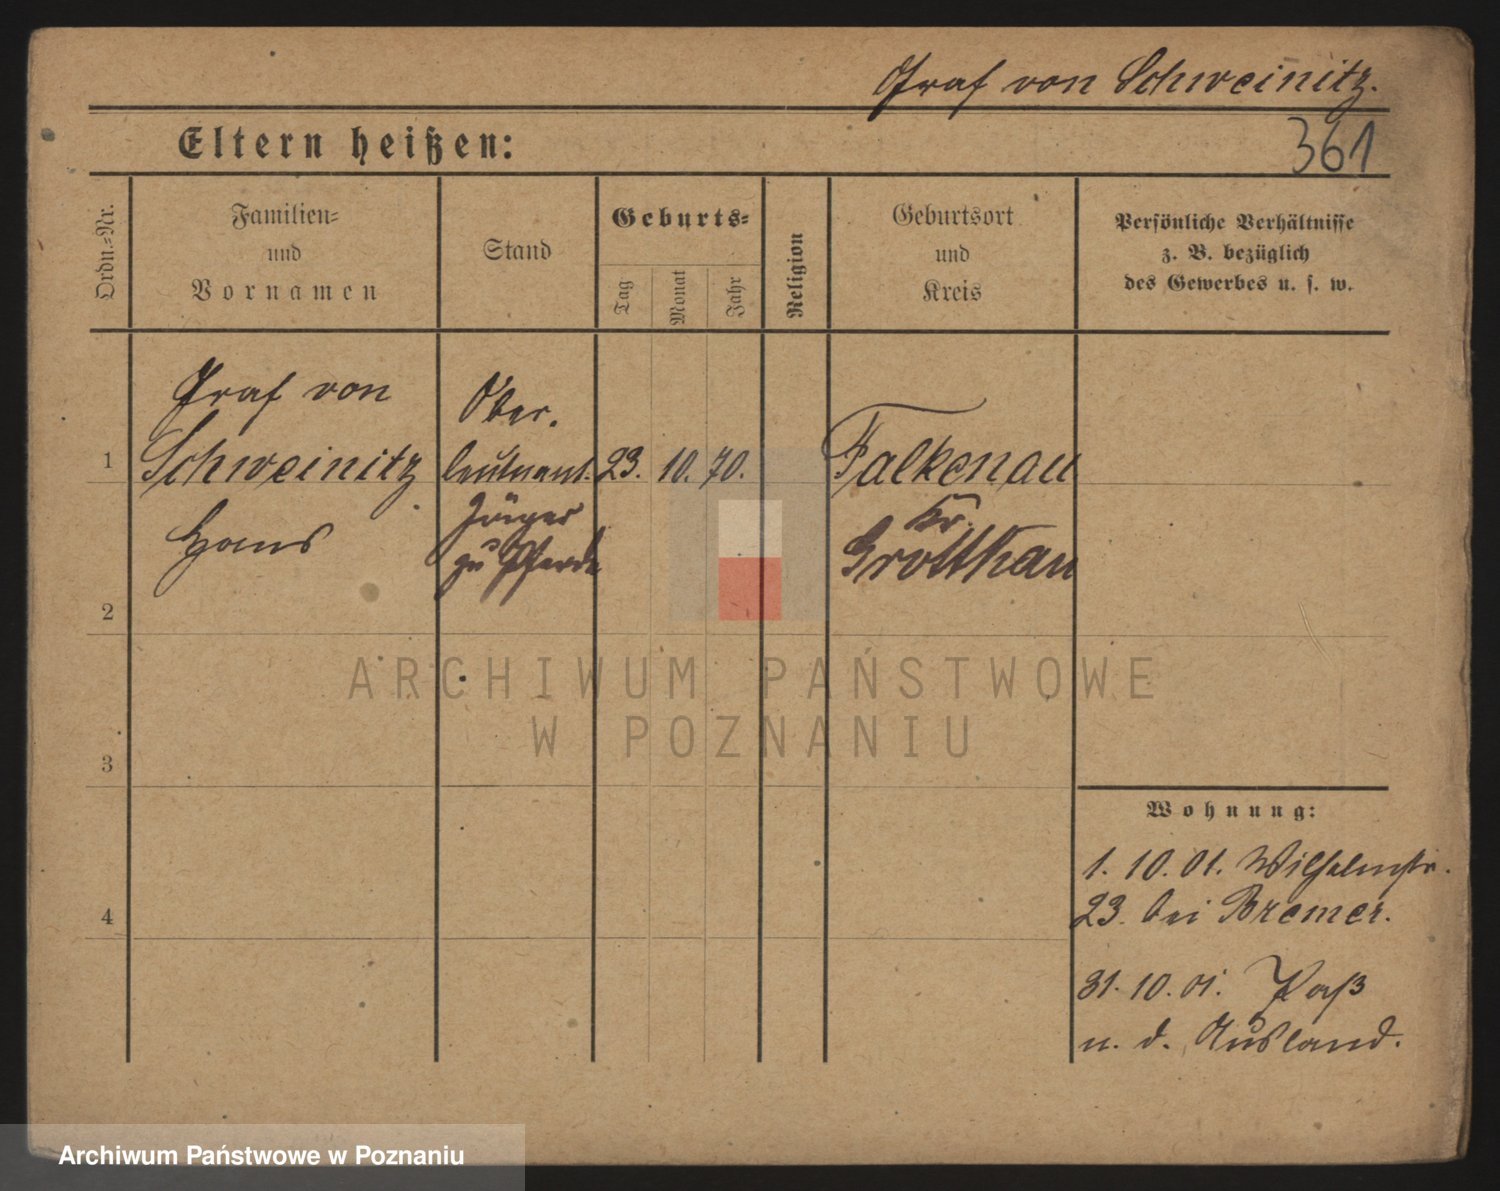 Graf von Schweinitz.
Eltern heißen:
361
Ordn.-Nr.
Familien-
und
Vornamen
Stand
Geburts-
Tag
Monat
Jahr
Religion
Geburtsort
und
Kreis
Persönliche Verhältnisse
z. B. bezüglich
des Gewerbes u. s. w.
1
Graf von
Schweinitz
Hans
Ober.
leutnant.
Jäger
zu Pferde
23. 10. 70.
Falkenau
Kr.
Grottkau
2
3
4
Wohnung:
1. 10. 01. Wilhelmstr.
23. bei Bremer.
31. 10. 01. Paß
n. d. Ausland.
ARCHIWUM PAŃSTWOWE
W POZNANIU
Archiwum Państwowe w Poznaniu